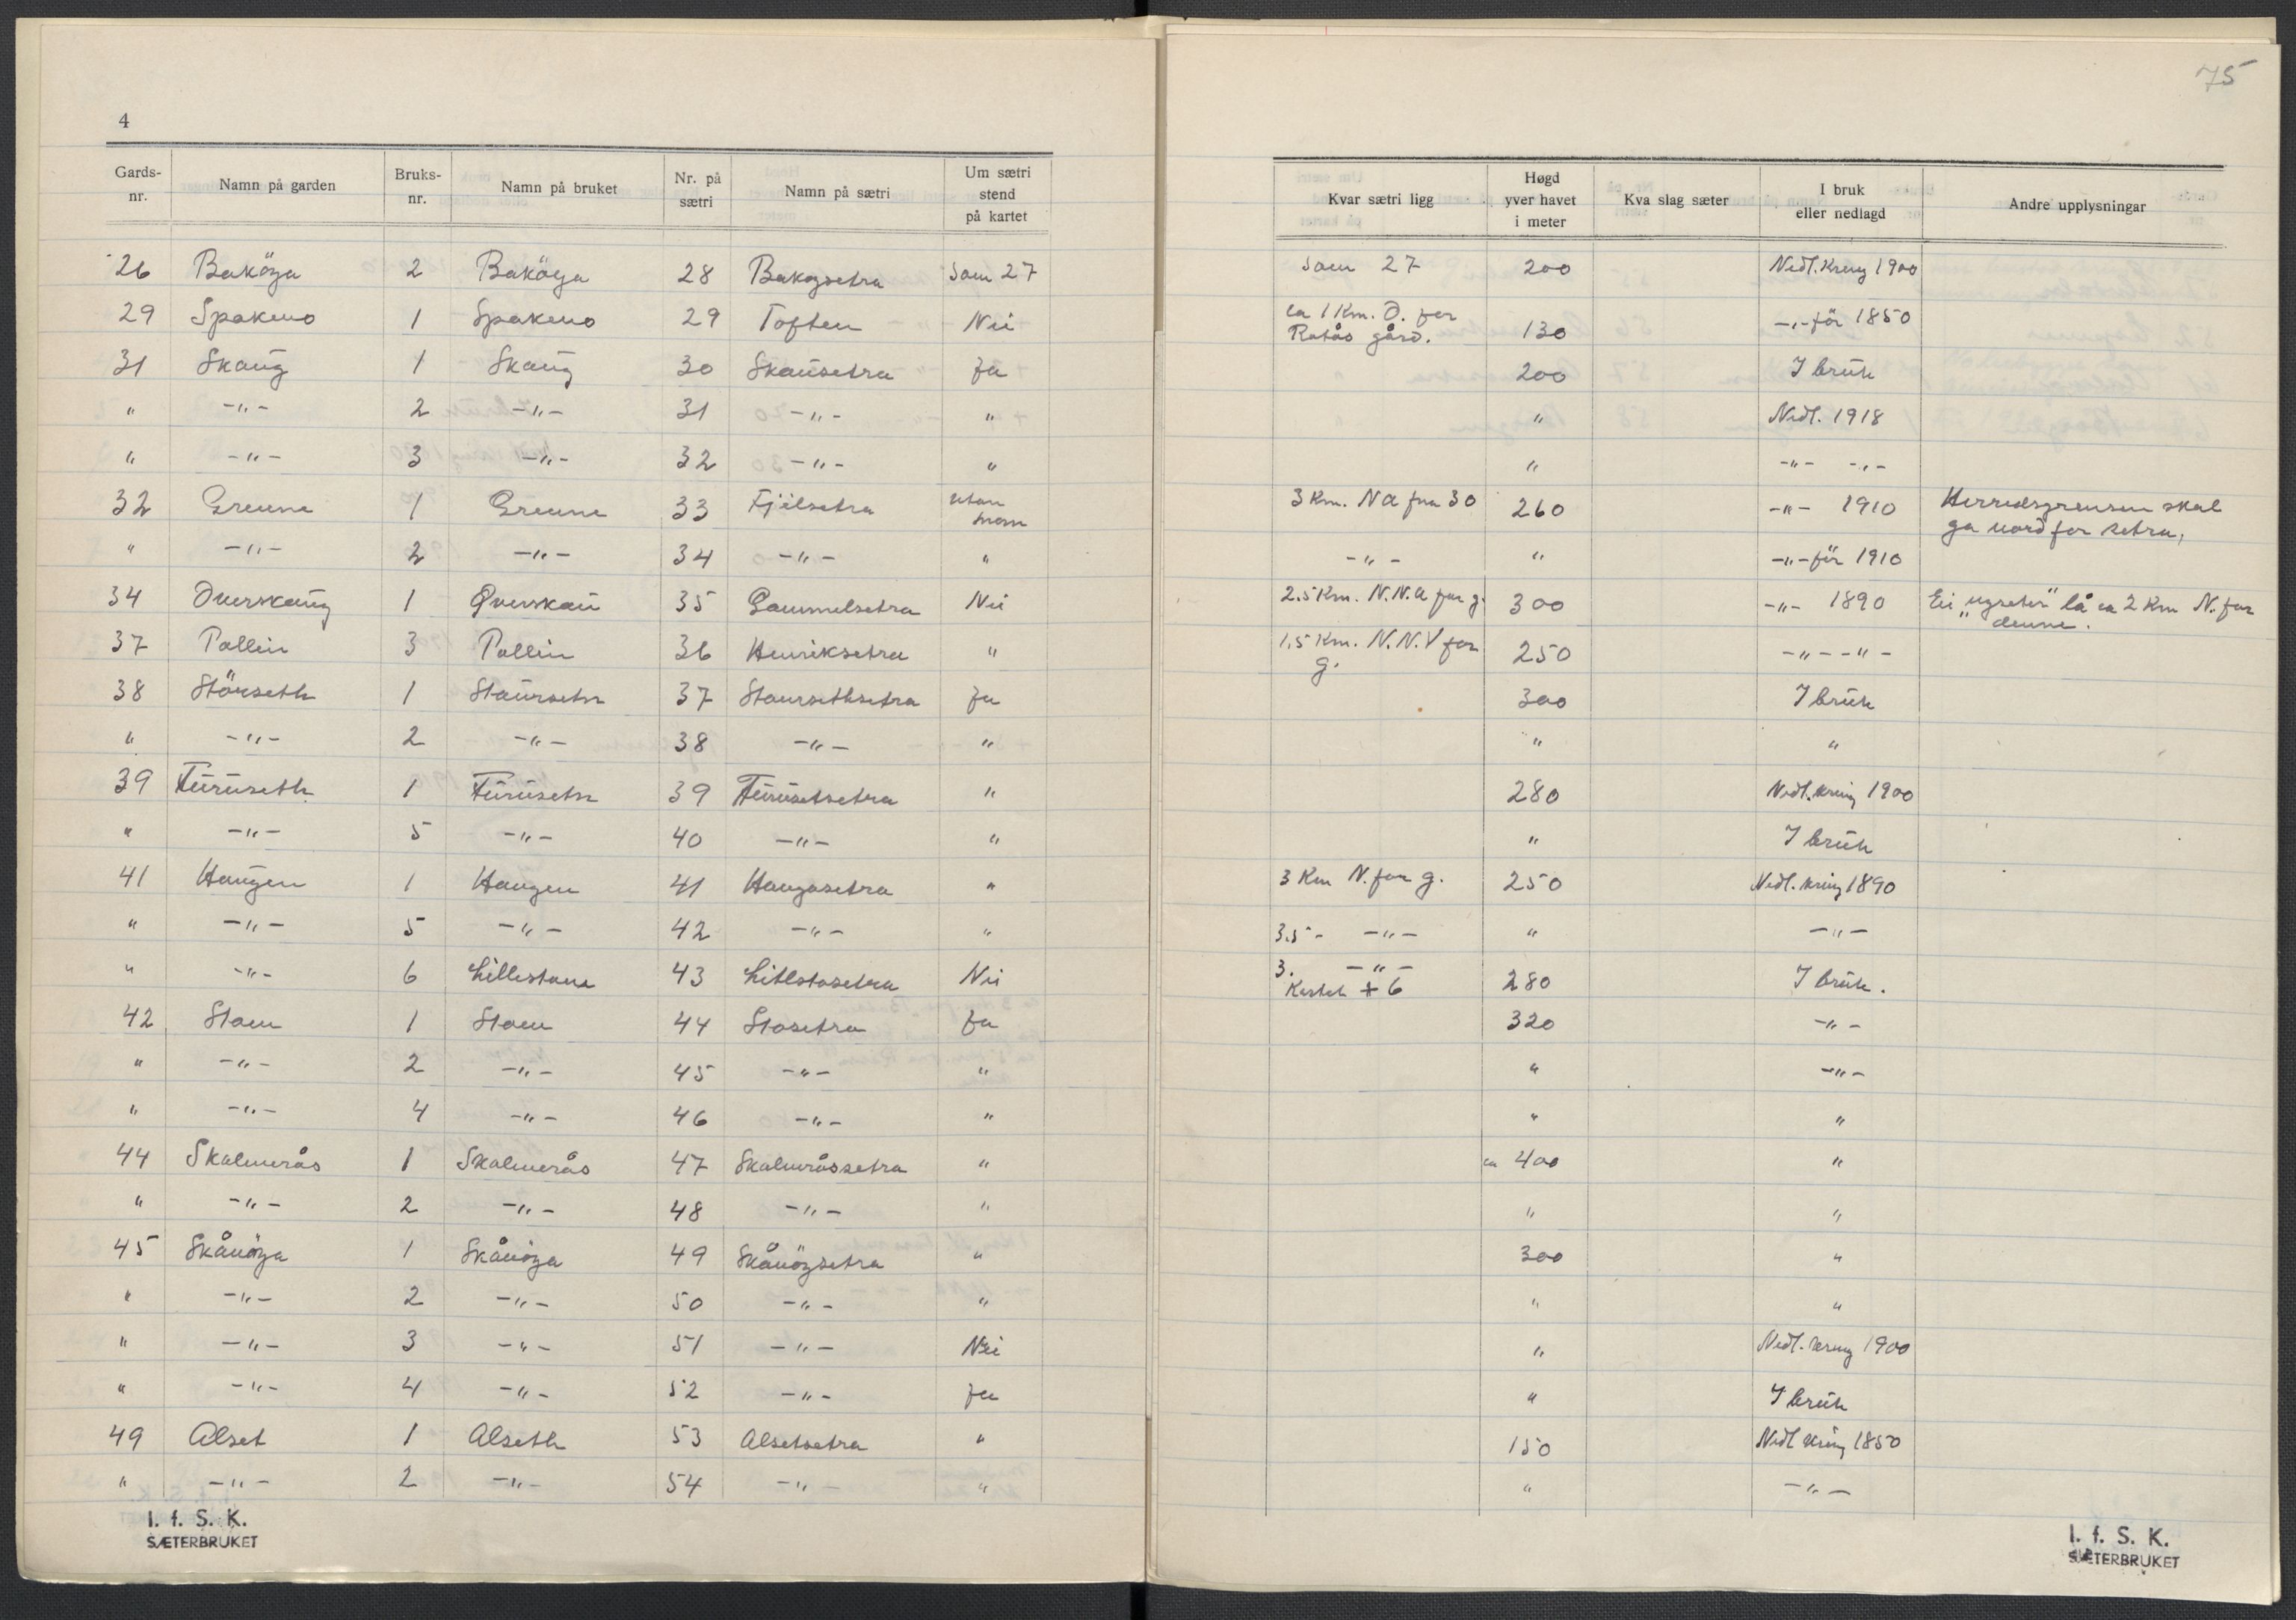 75
4
Gards-nr. Namn på garden Bruks-nr. Namn på bruket Nr. på sætri Namn på sætri Um sætri stend på kartet Kvar sætri ligg Høgd yver havet i meter Kva slag sæter I bruk eller nedlagd Andre upplysningar
26 Baköya 2 Baköya 28 Bakoysetra som 27 som 27 200 Nedl. kring 1900
29 Spakmo 1 Spakmo 29 Toften Nei ca 1 Km. Ö. for Ratås gård. 130 -"- för 1850
31 Skaug 1 Skaug 30 Skausetra Ja 200 I bruk
" -"- 2 -"- 31 -"- " " Nedl. 1918
" -"- 3 -"- 32 -"- " " -"- -"-
32 Grenne 1 Grenne 33 Fjelsetra utan nom 3 Km. NA fra 30 260 -"- 1910 Herredsgrensen skal ga nord for setra,
" -"- 2 -"- 34 -"- " -"- " -"- för 1910
34 Överskaug 1 Överskau 35 Gammelsetra Nei 2.5 Km. N.N.A for g. 300 -"- 1890 Ei "ugseter" lå ca 2 Km N. for denne.
37 Pallin 3 Pallin 36 Henriksetra " 1,5 Km. N.N.V for g. 250 -"- -"-
38 Störseth 1 Staurseth 37 Staursethsetra Ja 300 I bruk
" -"- 2 -"- 38 -"- " " "
39 Furuseth 1 Furuseth 39 Furusetsetra " 280 Nedl. kring 1900
" -"- 5 -"- 40 -"- " " I bruk
41 Haugen 1 Haugen 41 Haugasetra " 3 Km N. for g. 250 Nedl. kring 1890
" -"- 5 -"- 42 -"- " 3.5 - -"- " -"-
" -"- 6 Lillestaue 43 Litlstosetra Nei 3. -"- Kartet + 6 280 I bruk.
42 Stoen 1 Stoen 44 Stosetra Ja 320 -"-
" -"- 2 -"- 45 -"- " " -"-
" -"- 4 -"- 46 -"- " " "
44 Skalmerås 1 Skalmerås 47 Skalmeråssetra " ca 400 "
" -"- 2 -"- 48 -"- " " "
45 Skånöya 1 Skånöya 49 Skånöysetra " 300 "
" -"- 2 -"- 50 -"- " " "
" -"- 3 -"- 51 -"- Nei " Nedl. kring 1900
" -"- 4 -"- 52 -"- Ja " I bruk
49 Alset 1 Alseth 53 Alsetsetra " 150 Nedl kring 1850
" -"- 2 -"- 54 -"- " " -"-
I. f. S. K.
SÆTERBRUKET
I. f. S. K.
SÆTERBRUKET